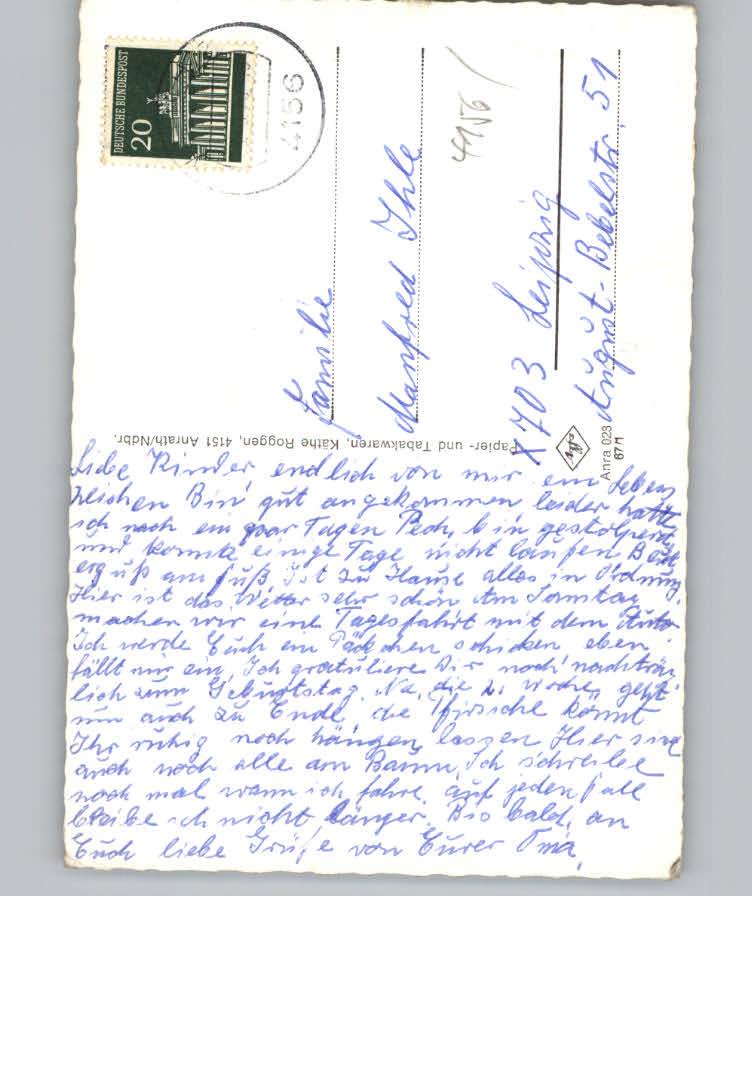 DEUTSCHE BUNDESPOST
20
4156
4156
Familie
Manfred Ihle
8703 Leipzig
August-Bebelstr. 51
Papier- und Tabakwaren, Käthe Roggen, 4151 Anrath/Ndbr.
Agfa
Anra 023
67 M
Liebe Kinder endlich von mir ein Lebens
zeichen Bin gut angekommen leider hatte
ich nach ein paar Tagen Pech, bin gestolpert
und konnte einige Tage nicht laufen Blut
erguß am Fuß Ist zu Hause alles in Ordnung.
Hier ist das Wetter sehr schön Am Sonntag
machen wir eine Tagesfahrt mit dem Auto
Ich werde Euch ein Päckchen schicken eben
fällt mir ein, Ich gratuliere Dir noch nachträg
lich zum Geburtstag. Na, die 2. Woche, geht
nun auch zu Ende, die Pfirsiche könnt
Ihr ruhig noch hängen lassen Hier sind
auch noch alle am Baum, Ich schreibe
noch mal wann ich fahre, auf jeden Fall
bleibe ich nicht länger. Bis bald, an
Euch liebe Grüße von Eurer Oma,